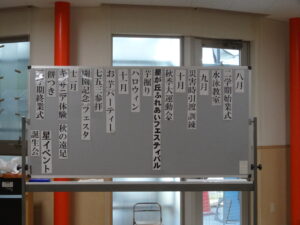 八月
二学期始業式
水泳教室
九月
災害時引渡訓練
十月
秋季大運動会
星が丘ふれあいフェスティバル
芋掘り
ハロウィン
十一月
お芋パーティー
七五三参拝
開園記念フェスタ
十二月
キッザニア体験 秋の遠足
餅つき
二学期終業式
星イベント
誕生会